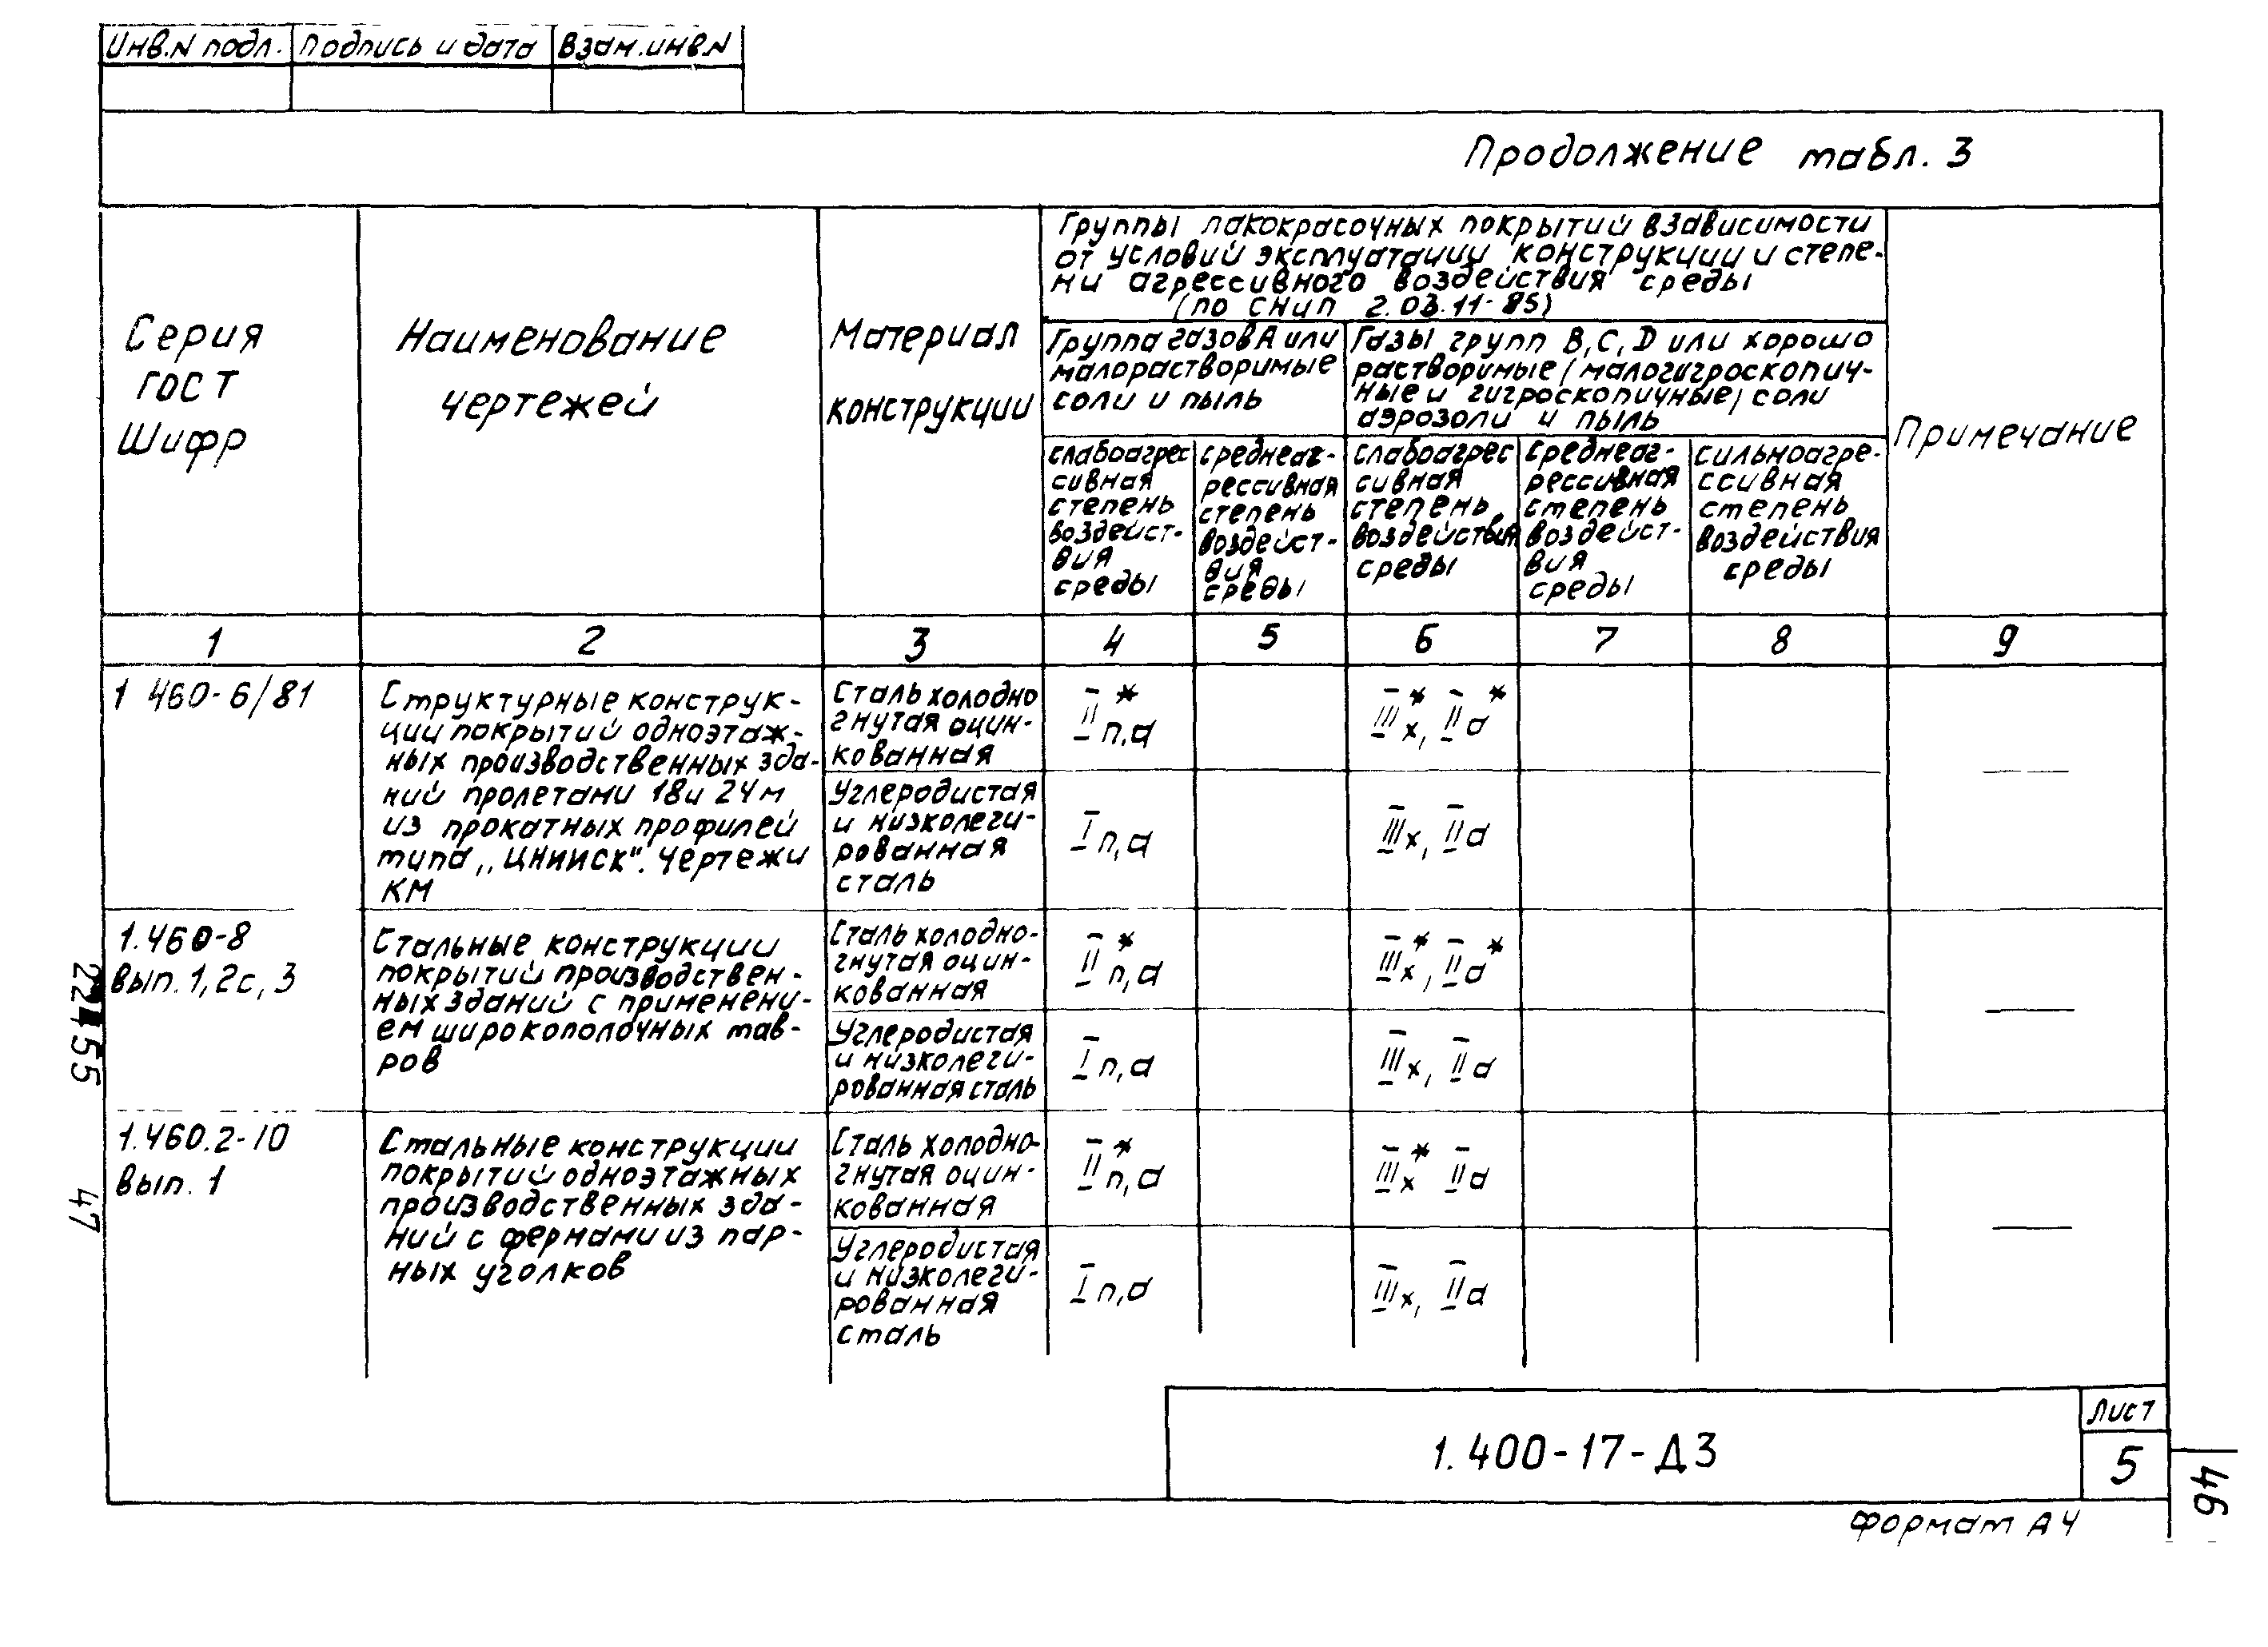 Инв.N подл. Подпись и дата Взам.инв.N
Продолжение табл. 3
Серия
ГОСТ
Шифр
Наименование
чертежей
Материал
конструкции
Группы лакокрасочных покрытий в зависимости
от условий эксплуатации конструкции и степе-
ни агрессивного воздействия среды
(по СНиП 2.03.11-85)
Группа газов А или
малорастворимые
соли и пыль
Газы групп В, С, D или хорошо
растворимые (малогигроскопич-
ные и гигроскопичные) соли
аэрозоли и пыль
слабоагрес
сивная
степень
воздейст-
вия
среды
среднеаг-
рессивная
степень
воздейст-
вия
среды
слабоагрес
сивная
степень
воздействия
среды
среднеаг-
рессивная
степень
воздейст-
вия
среды
сильноагре-
ссивная
степень
воздействия
среды
Примечание
1 2 3 4 5 6 7 8 9
1 460-6/81
Структурные конструк-
ции покрытий одноэтаж-
ных производственных зда-
ний пролетами 18и 24м
из прокатных профилей
типа „ЦНИИСК". Чертежи
КМ
Сталь холодно
гнутая оцин-
кованная
II* п,а
III* х, II а*
Углеродистая
и низколеги-
рованная
сталь
I п,а
III х, II а
—
1.460-8
Вып. 1, 2с, 3
Стальные конструкции
покрытий производствен-
ных зданий с применени-
ем широкополочных тав-
ров
Сталь холодно-
гнутая оцин-
кованная
II* п,а
III* х, II а*
Углеродистая
и низколеги-
рованная сталь
I п,а
III х, II а
—
1.460.2-10
Вып. 1
Стальные конструкции
покрытий одноэтажных
производственных зда-
ний с фермами из пар-
ных уголков
Сталь холодно-
гнутая оцин-
кованная
II* п,а
III* х II а
Углеродистая
и низколеги-
рованная
сталь
I п,а
III х, II а
—
22455 47
1.400-17-Д3
Лист
5
46
Формат А4